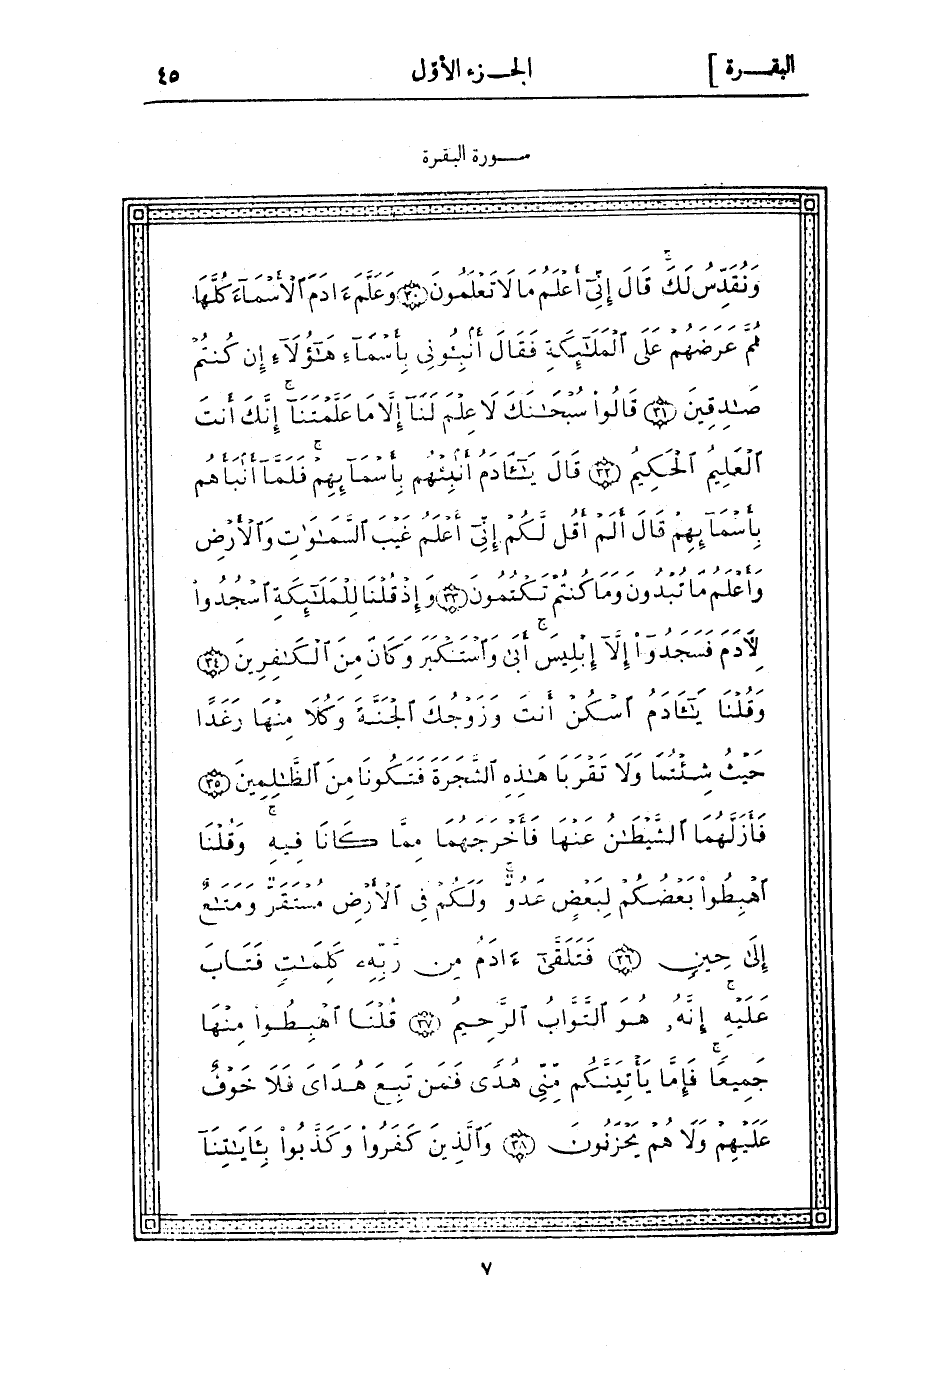 البقـــرة ]
الجـــزء الأوّل
٤٥
ســـورة البقرة
وَنُقَدِّسُ لَكَۖ قَالَ إِنِّىٓ أَعْلَمُ مَا لَا تَعْلَمُونَ ٣٠ وَعَلَّمَ ءَادَمَ ٱلْأَسْمَآءَ كُلَّهَا
ثُمَّ عَرَضَهُمْ عَلَى ٱلْمَلَٰٓئِكَةِ فَقَالَ أَنۢبِـُٔونِى بِأَسْمَآءِ هَٰٓؤُلَآءِ إِن كُنتُمْ
صَٰدِقِينَ ٣١ قَالُوا۟ سُبْحَٰنَكَ لَا عِلْمَ لَنَآ إِلَّا مَا عَلَّمْتَنَآۚ إِنَّكَ أَنتَ
ٱلْعَلِيمُ ٱلْحَكِيمُ ٣٢ قَالَ يَٰٓـَٔادَمُ أَنۢبِئْهُم بِأَسْمَآئِهِمْۚ فَلَمَّآ أَنۢبَأَهُم
بِأَسْمَآئِهِمْ قَالَ أَلَمْ أَقُل لَّكُمْ إِنِّىٓ أَعْلَمُ غَيْبَ ٱلسَّمَٰوَٰتِ وَٱلْأَرْضِ
وَأَعْلَمُ مَا تُبْدُونَ وَمَا كُنتُمْ تَكْتُمُونَ ٣٣ وَإِذْ قُلْنَا لِلْمَلَٰٓئِكَةِ ٱسْجُدُوا۟
لِـَٔادَمَ فَسَجَدُوٓا۟ إِلَّآ إِبْلِيسَۚ أَبَىٰ وَٱسْتَكْبَرَ وَكَانَ مِنَ ٱلْكَٰفِرِينَ ٣٤
وَقُلْنَا يَٰٓـَٔادَمُ ٱسْكُنْ أَنتَ وَزَوْجُكَ ٱلْجَنَّةَ وَكُلَا مِنْهَا رَغَدًا
حَيْثُ شِئْتُمَا وَلَا تَقْرَبَا هَٰذِهِ ٱلشَّجَرَةَ فَتَكُونَا مِنَ ٱلظَّٰلِمِينَ ٣٥
فَأَزَلَّهُمَا ٱلشَّيْطَٰنُ عَنْهَا فَأَخْرَجَهُمَا مِمَّا كَانَا فِيهِۚ وَقُلْنَا
ٱهْبِطُوا۟ بَعْضُكُمْ لِبَعْضٍ عَدُوٌّۖ وَلَكُمْ فِى ٱلْأَرْضِ مُسْتَقَرٌّ وَمَتَٰعٌ
إِلَىٰ حِينٍ ٣٦ فَتَلَقَّىٰٓ ءَادَمُ مِن رَّبِّهِۦ كَلِمَٰتٍ فَتَابَ
عَلَيْهِۚ إِنَّهُۥ هُوَ ٱلتَّوَّابُ ٱلرَّحِيمُ ٣٧ قُلْنَا ٱهْبِطُوا۟ مِنْهَا
جَمِيعًاۚ فَإِمَّا يَأْتِيَنَّكُم مِّنِّى هُدًى فَمَن تَبِعَ هُدَاىَ فَلَا خَوْفٌ
عَلَيْهِمْ وَلَا هُمْ يَحْزَنُونَ ٣٨ وَٱلَّذِينَ كَفَرُوا۟ وَكَذَّبُوا۟ بِـَٔايَٰتِنَآ
٧